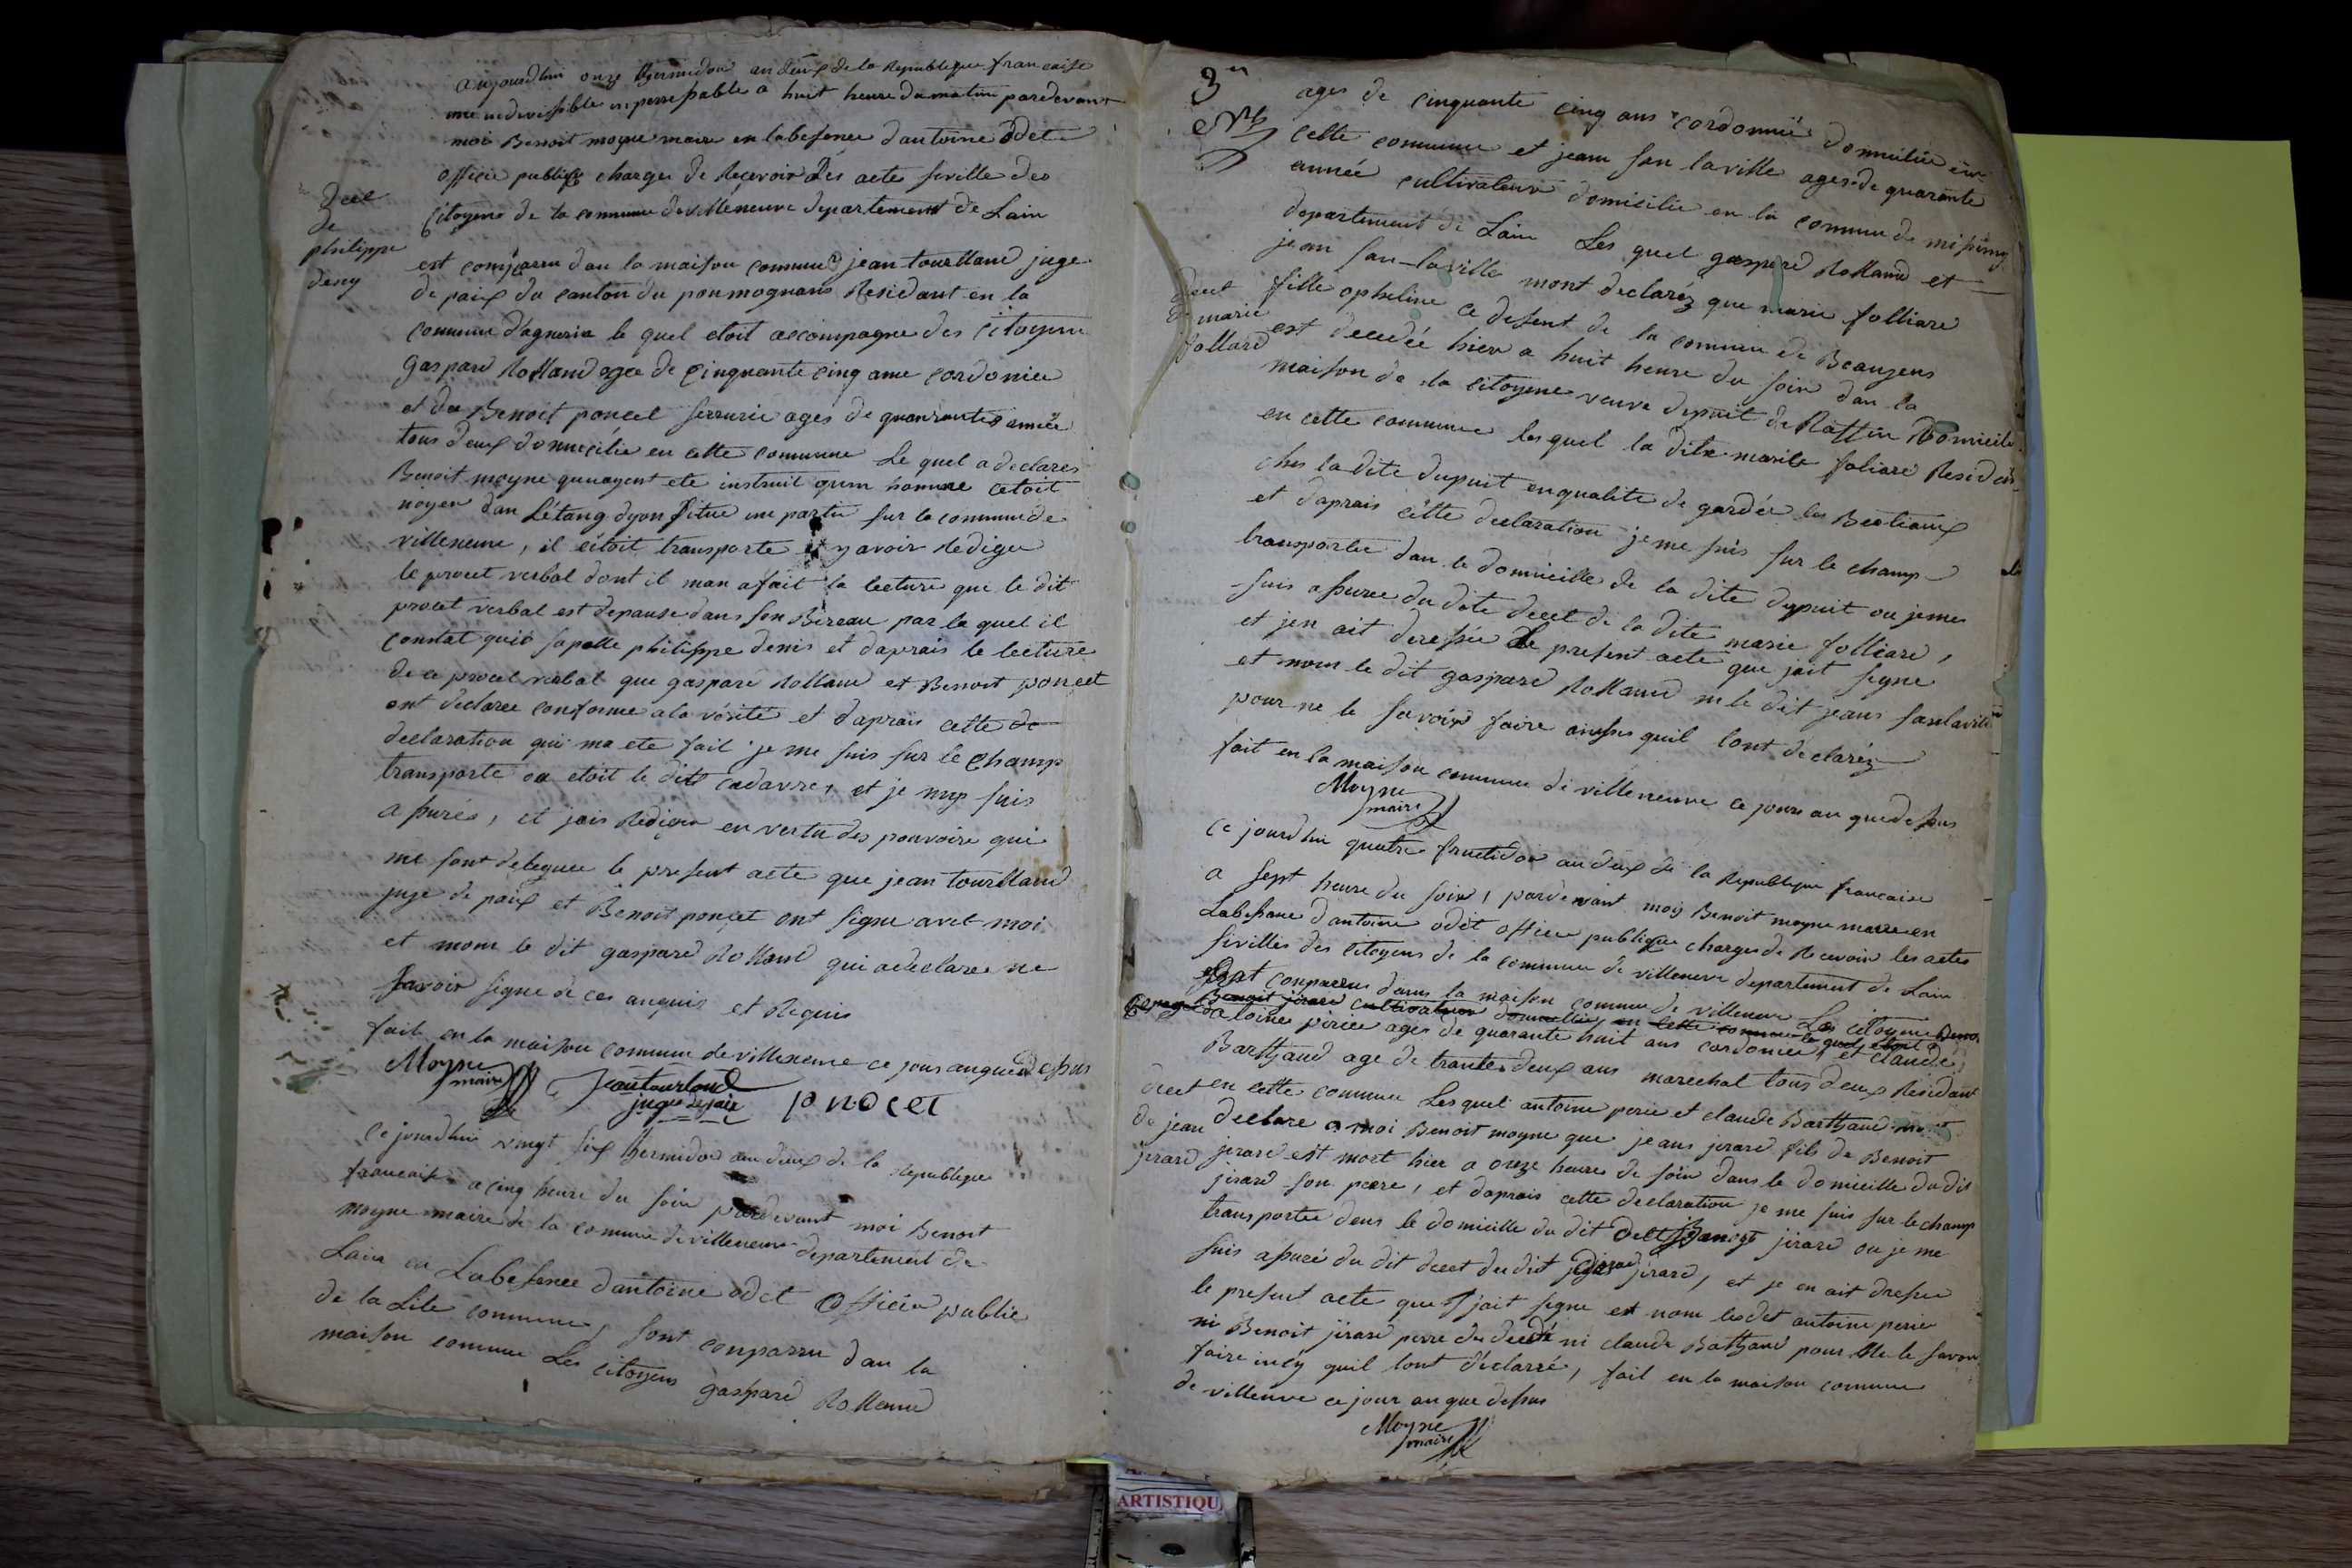 aujourdhui onze thermidor an deux de la Republique francaise
une indivisible inperissable a huit heure du matin pardevant
moi Benoit moyne maire en labesence dantoine odet
officie publique charges de Recevoir Les acte siville des
Citoyens de la commune de villeneuve departement de Lain
est comparru dan la maison commune jean tourlland juge
de paix du canton du pon mognans Residant en la
commune dagneria le quel etoit accompagne des citoyens
gaspard Rolland agee de cinquante cinq anne cordonier
et de Benoit poncet serrurie ages de quarante année
tous deux domicilie en cette commune Le quel a declares
Benoit moyne quu ayent ete instruit qum homme cetoit
noyer dan Létang dyon situe une partie sur la commune de
villeneuve, il cetoit transporte y avoir Redigee
le procet verbal dont il man a fait la lecture que le dit
procet verbal est depause dans son Bireau par le quel il
constat quil sapelle philippe denis et daprais le lecture
de ce procet verbal que gaspard Rolland et Benoit poncet
ont declaree conforme a la vérité et daprais cette de
declaration qui ma ete fait je me suis sur le champ
transporte ou etoit le dit cadavre, et je mys suis
assurés, et jais Rediger en vertu des pouvoire qui
me sont deleguee le present acte que jean tourlland
juge de paix et Benoit poncet ont signe avet moi
et nom le dit gaspard Rolland qui a declaree ne
savoir signe de ces anquis et Requis
fait en la maison commune de villeneuve ce jour an que dessus
Moyne maire
jean tourland
juge de paix
pnocet
decet
de
philippe
deny
ce jourdhui vingt six thermidor an deux de la Republique
francaise a cinq heure du soir pardevant moi Benoit
moyne maire de la commune de villeneuve departement de
Lain en Labesence dantoine odet officier public
de la dite commune, sont conparru dan la
maison commune Les citoyens gaspard Rolland
3
ages de cinquante cinq ans cordonnie domicilie en
cette commune et jean san laville ages de quarante
année cultivateur domicilie en la commune de misérieux
departement de Lain Les quel gaspard Rolland et
jean san laville mont declaréz que marie folliare
fille opheline a desent de la commune de Beaujeus
est decedée hier a huit heure du soir dan la
maison de la citoyene veuve dupuit de Raffin Domicilie
en cette commune les quel la dite marie foliare Residoit
ches la dite dupuit en qualite de gardée les Bestiaux
et daprais cette declaration je me suis sur le champ
transportee dan le domicille de la dite dupuit ou je me
suis assuree du dite decet de la dite marie folliare,
et jen ait deressée Le present acte que jait signe
et nom le dit gaspard Rolland ni le dit jeans sanlaville
pour ne le savoir faire ainssis quil lont declaréz
fait en la maison commune de villeneuve ce jour an que dessus
Moyne
maire
decet
de marie
follard
ce jourdhui quatre fructidor an deux de la Republique francaise
a sept heure du soir, pardevant mois Benoit moyne maire en
Labessance dantoine odet officie publique charges de Recevoir les actes
siville des citoyens de la commune de villeneuve departement de Lain
sont conparrus dans la maison commune de villeneuve Les citoyens Benoi
Benoit jirard cultivateur domicilie en cette commune le quel etoit a
antoine périer ages de quarante huit ans cordonier, et claude
Barthaud age de trante deux ans marechal tous deux Residant
en cette commune Lesquel antoine perie et claude Barthaud mont
declare a moi Benoit moyne que jeans jirard fils de Benoit
jirard est mort hier a onze heures de soir dans le domicille du dit
jirard son pere, et daprais cette declaration je me suis sur le champ
transportee dens le domicille du dit Benoit jirard ou je me
suis assuré du dit decet du dit jirard, et je en ait dressee
le present acte que jait signe et nom les det antoine perie
ni Benoit jirard perre du decede ni claude Bathaud pour ne le savoir
faire incy quil lont declarré, fait en la maison commune
de villeneuve ce jour an que dessus
Moyne
maire
decet
de jean
jirard
ARTISTIQU